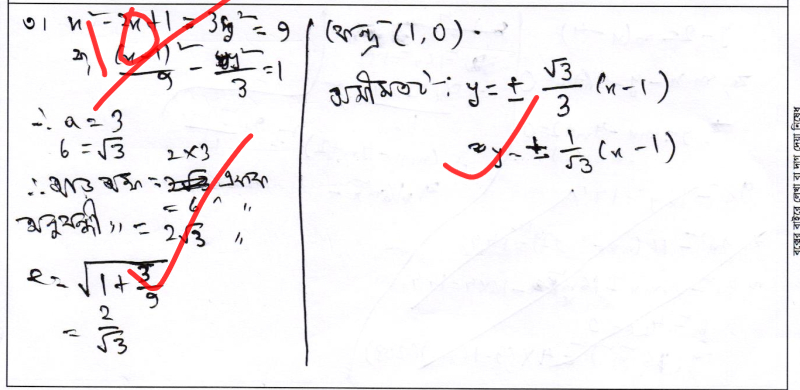 ৩। x² - 2x + 1 = 3y² = 9
বা, (x-1)²/9 - y²/3 = 1
10
∴ a = 3
b = √3
2×3
∴ আড় অক্ষ = 2√3 একক
= 6 " "
অনুবন্ধী " = 2√3 "
e = √(1 + 3/9)
= 2/√3
কেন্দ্র (1, 0).
অসীমতট : y = ± √3/3 (x-1)
⇒ y = ± 1/√3 (x-1)
বক্সের বাইরে লেখা বা দাগ দেয়া নিষেধ